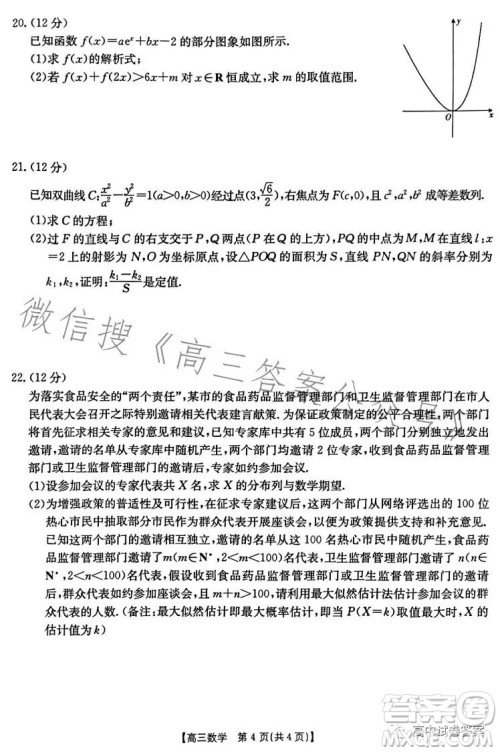 20.(12分)
已知函数 f(x)=aeˣ+bx-2 的部分图象如图所示.
(1)求 f(x)的解析式;
(2)若 f(x)+f(2x)>6x+m 对 x∈R 恒成立,求 m 的取值范围.
y
O
x
21.(12分)
已知双曲线 C:x²/a²-y²/b²=1(a>0,b>0)经过点(3,√6/2),右焦点为 F(c,0),且 c²,a²,b² 成等差数列.
(1)求 C 的方程;
(2)过 F 的直线与 C 的右支交于 P,Q 两点(P 在 Q 的上方),PQ 的中点为 M,M 在直线 l:x
=2 上的射影为 N,O 为坐标原点,设△POQ 的面积为 S,直线 PN,QN 的斜率分别为
k₁,k₂,证明:(k₁-k₂)/S 是定值.
微信搜《高三答案公众号》
22.(12分)
为落实食品安全的“两个责任”,某市的食品药品监督管理部门和卫生监督管理部门在市人
民代表大会召开之际特别邀请相关代表建言献策.为保证政策制定的公平合理性,两个部门
将首先征求相关专家的意见和建议,已知专家库中共有 5 位成员,两个部门分别独立地发出
批邀请的名单从专家库中随机产生,两个部门均邀请 2 位专家,收到食品药品监督管理部
或卫生监督管理部门的邀请后,专家如约参加会议.
(1)设参加会议的专家代表共 X 名,求 X 的分布列与数学期望.
(2)为增强政策的普适性及可行性,在征求专家建议后,这两个部门从网络评选出的 100 位
热心市民中抽取部分市民作为群众代表开展座谈会,以便为政策提供支持和补充意见.
已知这两个部门的邀请相互独立,邀请的名单从这 100 名热心市民中随机产生,
食品药品监督管理部门邀请了 m(m∈N*,2<m<100)名代表,卫生监督管理部门邀请了 n(n∈
N*,2<n<100)名代表,假设收到食品药品监督管理部门或卫生监督管理部门的邀请后,
群众代表如约参加座谈会,且 m+n>100,请利用最大似然估计法估计参加会议的群
众代表的人数.(备注:最大似然估计即指出概率取得最大时的估计,即当 P(X=k)取最大值时,X 的
估计值为 k)
【高三数学 第 4 页(共 4 页)】
高中试卷答案